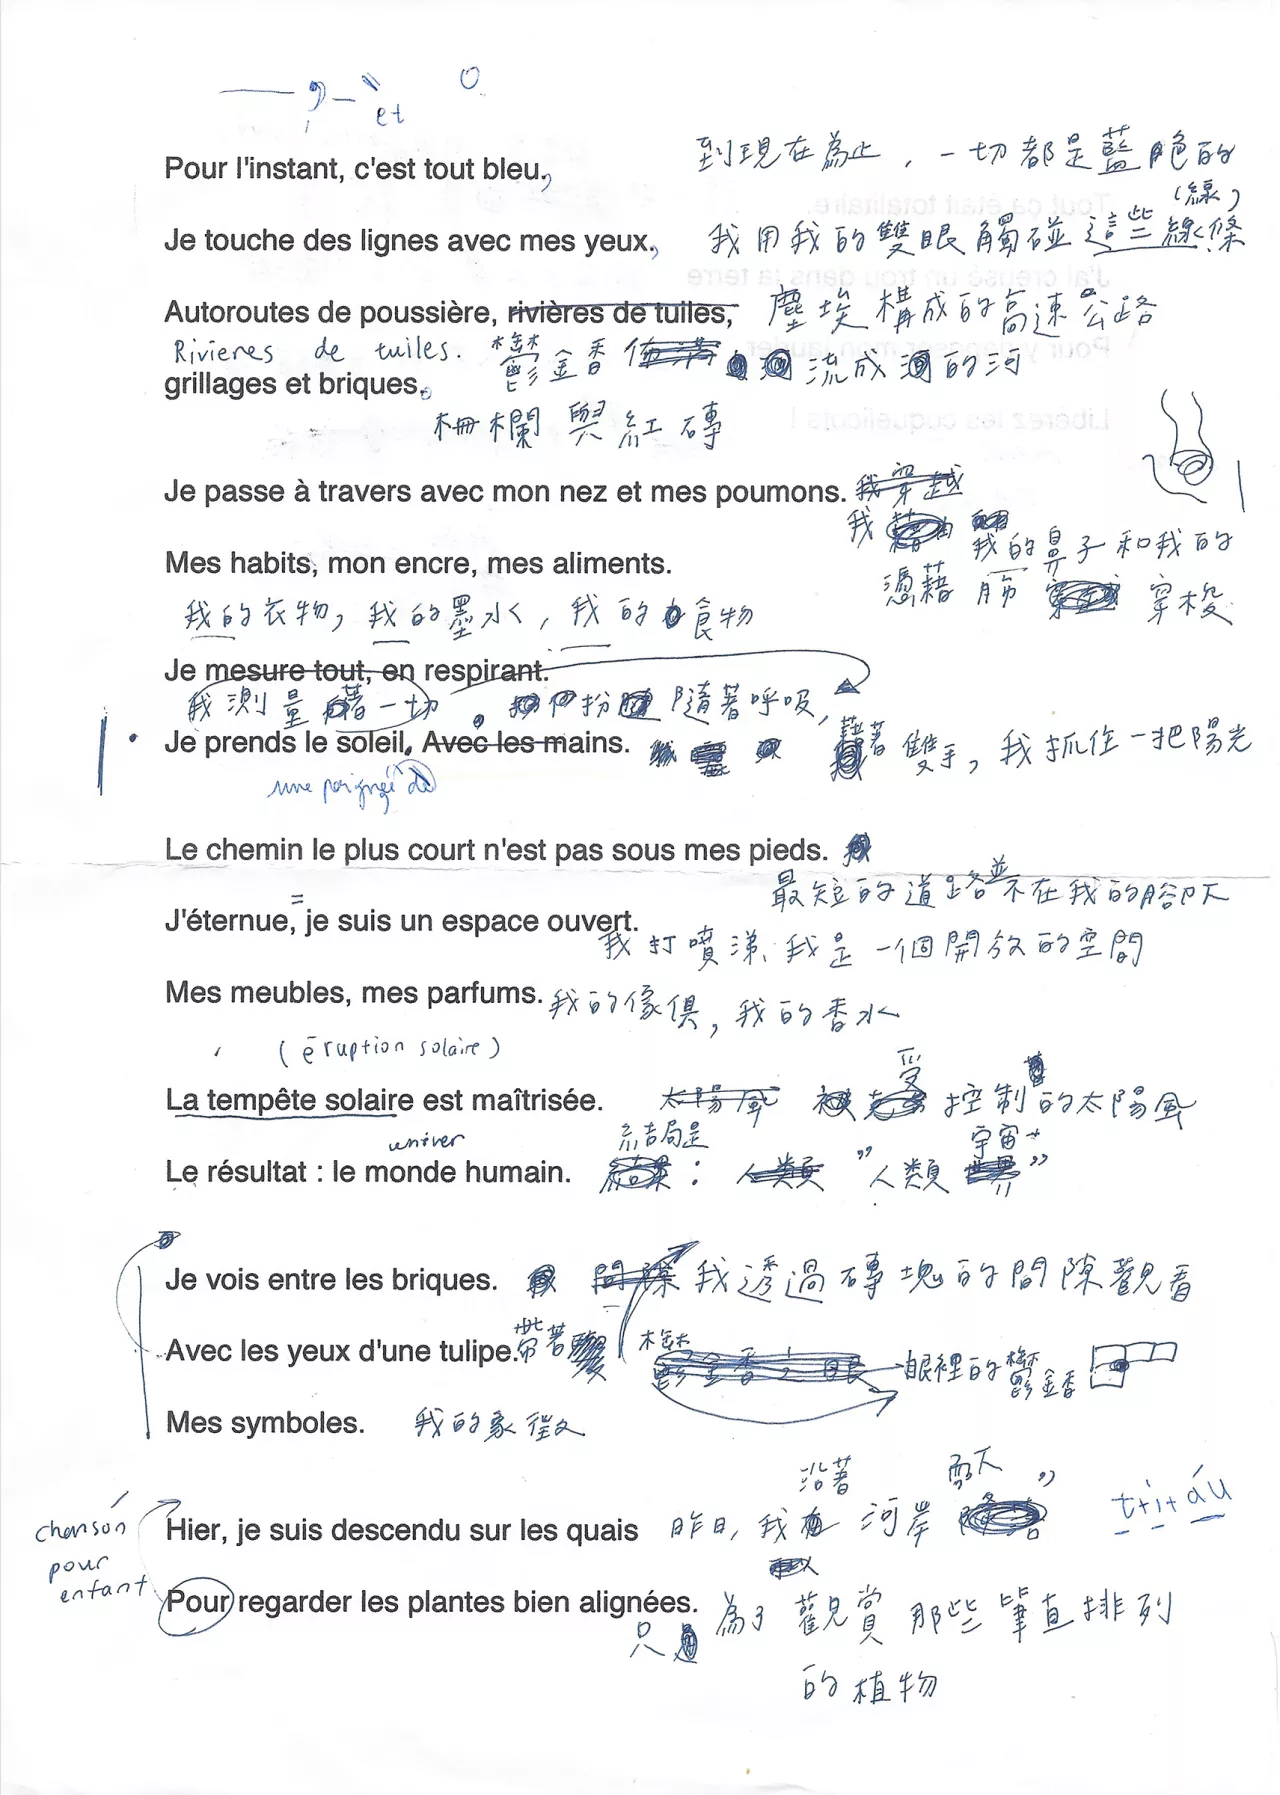 et
Pour l'instant, c'est tout bleu.,
到現在為止，一切都是藍色的
(線)
Je touche des lignes avec mes yeux.,
我用我的雙眼觸碰這些線條
Autoroutes de poussière, rivières de tuiles,
塵埃構成的高速公路
Rivieres de tuiles.
鬱金香佈滿 流成河的河
grillages et briques.
柵欄與紅磚
Je passe à travers avec mon nez et mes poumons.
我穿越
我 我的鼻子和我的
Mes habits, mon encre, mes aliments.
憑藉 肺 穿梭
我的衣物, 我的墨水, 我的食物
Je mesure tout, en respirant.
我測量著一切 隨著呼吸,
Je prends le soleil. Avec les mains.
藉著雙手, 我抓住一把陽光
une poignée de
Le chemin le plus court n'est pas sous mes pieds.
最短的道路並不在我的腳下
J'éternue, je suis un espace ouvert.
我打噴涕、我是一個開放的空間
Mes meubles, mes parfums.
我的傢俱, 我的香水
(éruption solaire)
La tempête solaire est maîtrisée.
太陽風 受控制的太陽風
univer
結局是 宇宙
Le résultat : le monde humain.
結果: 人類 "人類 世界"
Je vois entre les briques.
間隙 我透過磚塊的間隙觀看
Avec les yeux d'une tulipe.
帶著 鬱金香之眼 眼裡的鬱金香
Mes symboles.
我的象徵
沿著 露天"
Hier, je suis descendu sur les quais
昨日, 我 河岸
tritáu
chanson pour enfant
Pour regarder les plantes bien alignées.
只 為了觀賞那些筆直排列
的植物